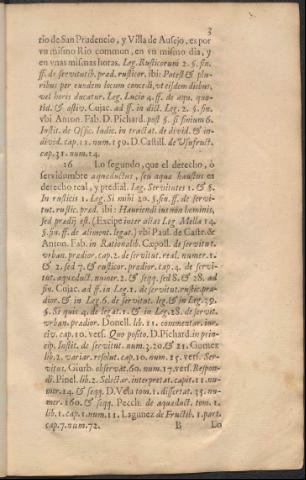 3
rio de San Prudencio, y Villa de Ausejo, es por
vn mismo Rio commun, en vn mismo dia, y
en vnas mismas horas. Leg. Rusticorum 2. §. fin.
ff. de servitutib. præd. rusticor. ibi: Potest & plu-
ribus per eundem locum concedi, vt eisdem diebus,
vel horis ducatur. Leg. Lucio 4. ff. de aqu. quo-
tid. & æstiv. Cujac. ad ff. in dict. Leg. 2. §. fin.
vbi Anton. Fab. D. Pichard. post §. si finium 6.
Instit. de Offic. Iudic. in tractat. de divid. & in-
divid. cap. 11. num. 150. D. Castill. de Vsufruct.
cap. 31. num. 14.
26 Lo segundo, que el derecho, ò
servidumbre aquæductus, seu aquæ haustus es
derecho real, y predial. Leg. Servitutes 1. & §.
In rusticis 1. Leg. Si mihi 20. §. fin. ff. de servi-
tut. rustic. præd. ibi: Hauriendi ius non hominis,
sed prædij est. (Excipe inter alias Leg. Mella 14.
§. fin. ff. de aliment. legat.) vbi Paul. de Castr. &
Anton. Fab. in Rationalib. Cæpoll. de servitut.
vrban. prædior. cap. 2. de servitut. real. numer. 1.
& 2. sed 7. & rusticor. prædior. cap. 4. de servi-
tut. aquæduct. numer. 2. & seqq. sed 8. & 28. ad
fin. Cujac. ad ff. in Leg. 1. de servitut. rustic. præ-
dior. & in Leg. 6. de servitut. leg. & in Leg. 39.
§. Si quis 4. de legat. 1. & in Leg. 28. de servit.
vrban. prædior. Donell. lib. 11. commentar. iur.
civ. cap. 10. vers. Quo posito. D. Pichard. in prin-
cip. Instit. de servitut. num. 3. 20. & 21. Gomez
lib. 2. variar. resolut. cap. 10. num. 15. vers. Ser-
vitut. Giurb. observat. 60. num. 17. vers. Respon-
di. Pinel. lib. 2. Selectar. interpretat. capit. 11. nu-
mer. 14. & seqq. D. Vela tom. 1. dissertat. 35. nu-
mer. 160. & seqq. Pecch. de aquæduct. tom. 1.
lib. 1. cap. 1. num. 11. Lagunez de Fructib. 1. part.
cap. 7. num. 72. B Lo